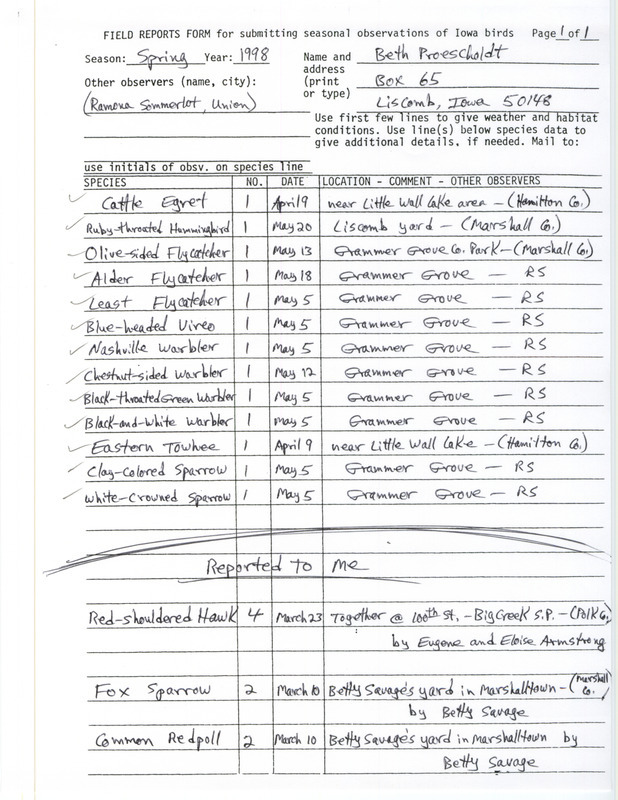 FIELD REPORTS FORM for submitting seasonal observations of Iowa birds Page 1 of 1
Season: Spring Year: 1998 Name and address (print or type) Beth Proescholdt
Box 65
Liscomb, Iowa 50148
Other observers (name, city):
(Ramona Sommerlot, Union)
Use first few lines to give weather and habitat
conditions. Use line(s) below species data to
give additional details, if needed. Mail to:
use initials of obsv. on species line
SPECIES NO. DATE LOCATION - COMMENT - OTHER OBSERVERS
Cattle Egret 1 April 9 near Little Wall Lake area - (Hamilton Co.)
Ruby-throated Hummingbird 1 May 20 Liscomb yard - (Marshall Co.)
Olive-sided Flycatcher 1 May 13 Grammer Grove Co. Park - (Marshall Co.)
Alder Flycatcher 1 May 18 Grammer Grove - RS
Least Flycatcher 1 May 5 Grammer Grove - RS
Blue-headed Vireo 1 May 5 Grammer Grove - RS
Nashville Warbler 1 May 5 Grammer Grove - RS
Chestnut-sided Warbler 1 May 12 Grammer Grove - RS
Black-throated Green Warbler 1 May 5 Grammer Grove - RS
Black-and-White Warbler 1 May 5 Grammer Grove - RS
Eastern Towhee 1 April 9 near Little Wall Lake - (Hamilton Co.)
Clay-Colored Sparrow 1 May 5 Grammer Grove - RS
White-Crowned Sparrow 1 May 5 Grammer Grove - RS
Reported To Me
Red-shouldered Hawk 4 March 23 Together @ 100th St. - Big Creek S.P. - (Polk Co.)
by Eugene and Eloise Armstrong
Fox Sparrow 2 March 10 Betty Savage's yard in Marshalltown - (Marshall Co.)
by Betty Savage
Common Redpoll 2 March 10 Betty Savage's yard in Marshalltown by
Betty Savage